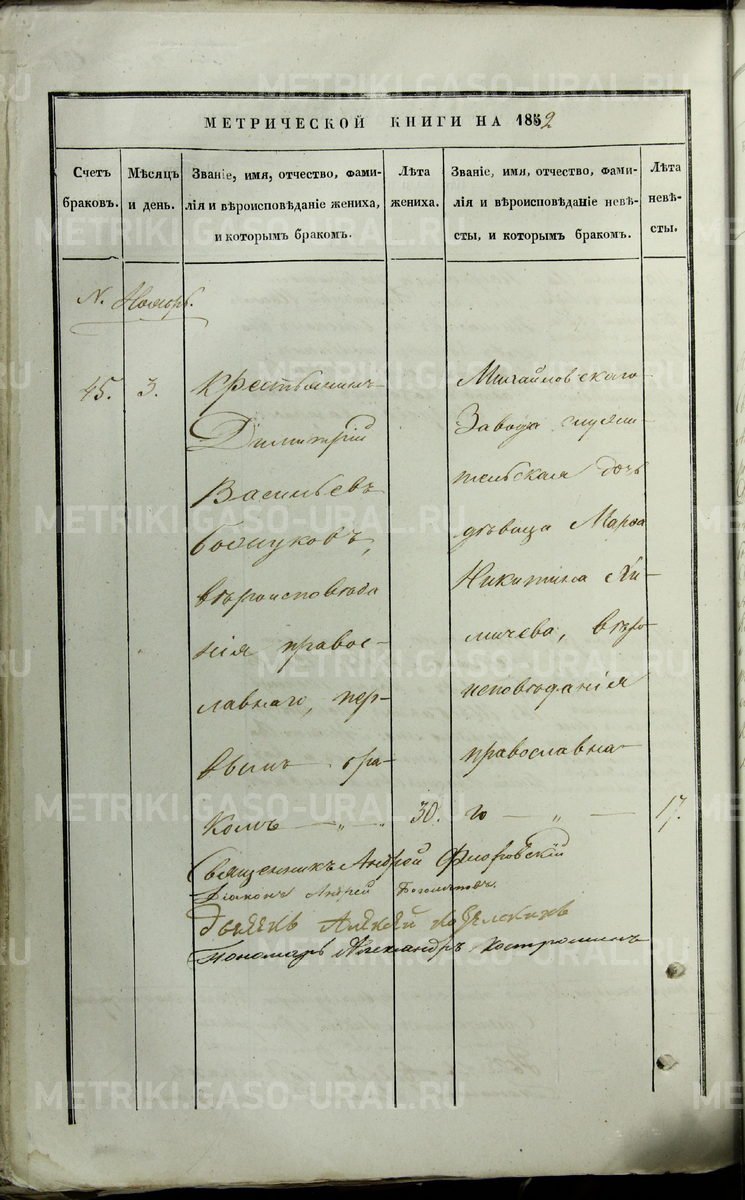 МЕТРИЧЕСКОЙ КНИГИ НА 1852
Счетъ браковъ.
Мѣсяцъ и день.
Званіе, имя, отчество, фами-
лія и вѣроисповѣданіе жениха,
и которымъ бракомъ.
Лѣта жениха.
Званіе, имя, отчество, фами-
лія и вѣроисповѣданіе невѣ-
сты, и которымъ бракомъ.
Лѣта невѣ-
сты.
N. Ноябрь.
45. 3.
Крестьянинъ
Димитрій
Васильевъ
вѣроисповѣда
нія правос-
лавнаго, пер-
вымъ бра-
комъ — „ „ 30.
Михайловскаго
Завода служи-
тельская дочь
дѣвица Марѳа
Никитина
мичева, вѣро
исповѣданія
православна-
го — „ — 17.
Священникъ Андрей Флоровскій
Діаконъ Андрей
Дьячекъ Алексѣй
Пономарь Александръ Костроминъ
METRIKI.GASO-URAL.RU